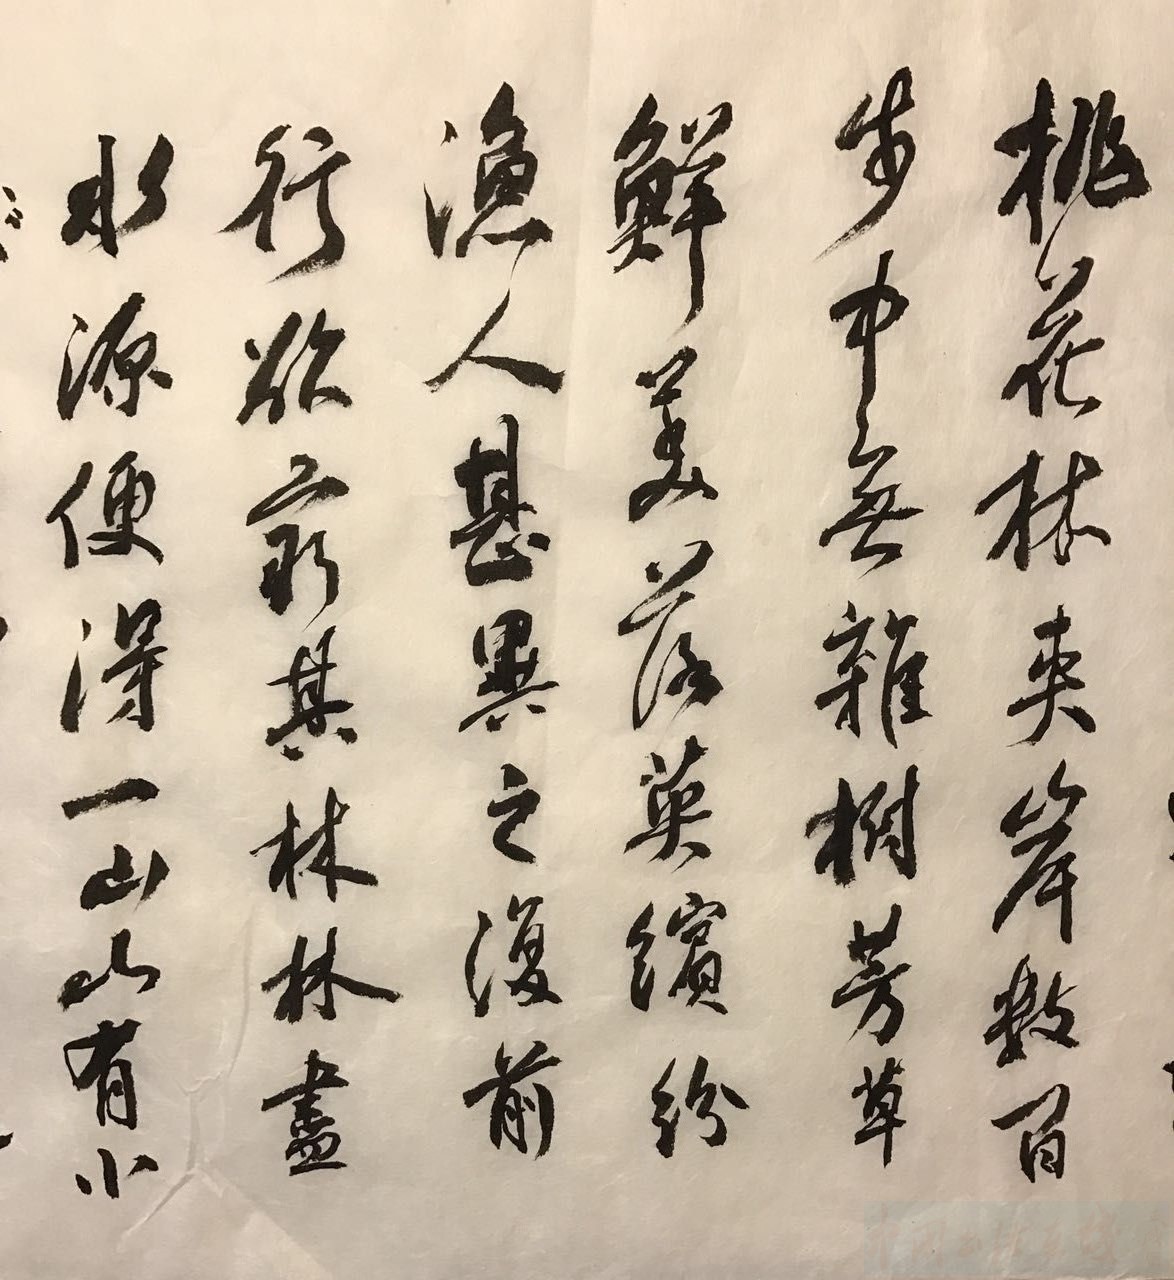 桃花林夹岸數百
步中無雜樹芳草
鮮美落英繽紛
漁人甚異之復前
行欲窮其林林盡
水源便得一山山有小